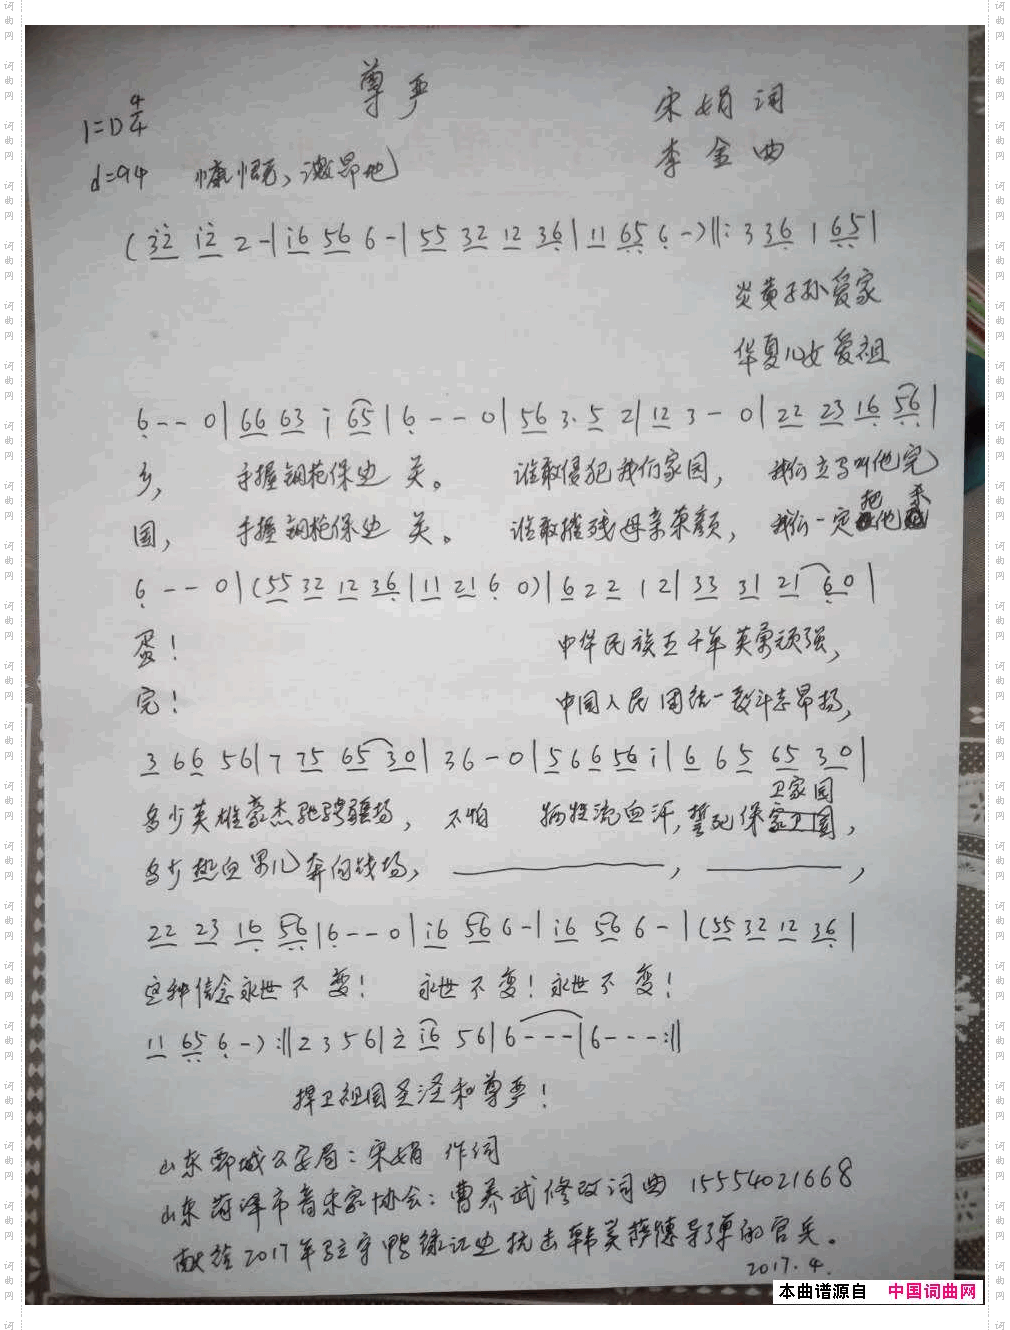 尊严
1=D 4/4
宋娟 词
李金 曲
♩=94 慷慨、激昂地
( 3 2̇ i 2̇ 2 - | i 6 5 6 6 - | 5 5 3 2 1 2 3 6 | 1 1 6 5 6 - ) ‖: 3 3 6 1 6 5 |
炎黄子孙爱家
华夏儿女爱祖
6 - - 0 | 6 6 6 3 i 6 5 | 6 - - 0 | 5 6 3 · 5 2 | 1 2 3 - 0 | 2 2 2 3 1 6 5 6 |
乡, 手握钢枪保边关。 谁敢侵犯我们家园, 我们立马叫他完
国, 手握钢枪保边关。 谁敢摧残母亲荣颜, 我们一定把他杀
6 - - 0 | ( 5 5 3 2 1 2 3 6 | 1 1 2 1 6 0 ) | 6 2 2 1 2 | 3 3 3 1 2 1 6 0 |
蛋! 中华民族五千年英勇顽强,
完! 中国人民团结一致斗志昂扬,
3 6 6 5 6 | 7 7 5 6 5 3 0 | 3 6 - 0 | 5 6 6 5 6 i | 6 6 5 6 5 3 0 |
卫家园
多少英雄豪杰驰骋疆场, 不怕 牺牲流血汗, 誓死保家卫国,
多少热血男儿奔向战场, ———, ———,
2 2 2 3 1 6 5 6 | 6 - - 0 | i 6 5 6 6 - | i 6 5 6 6 - | ( 5 5 3 2 1 2 3 6 |
这种信念永世不变! 永世不变! 永世不变!
1 1 6 5 6 - ) :‖ 2 3 5 6 | 2̇ i 6 5 6 | 6 - - - | 6 - - - :‖
捍卫祖国圣洁和尊严!
山东鄄城公安局: 宋娟 作词
山东菏泽市音乐家协会: 曹养武修改词曲 15554021668
献给2017年驻守鸭绿江边抗击韩美萨德导弹的官兵。
2017.4.
本曲谱源自 中国词曲网